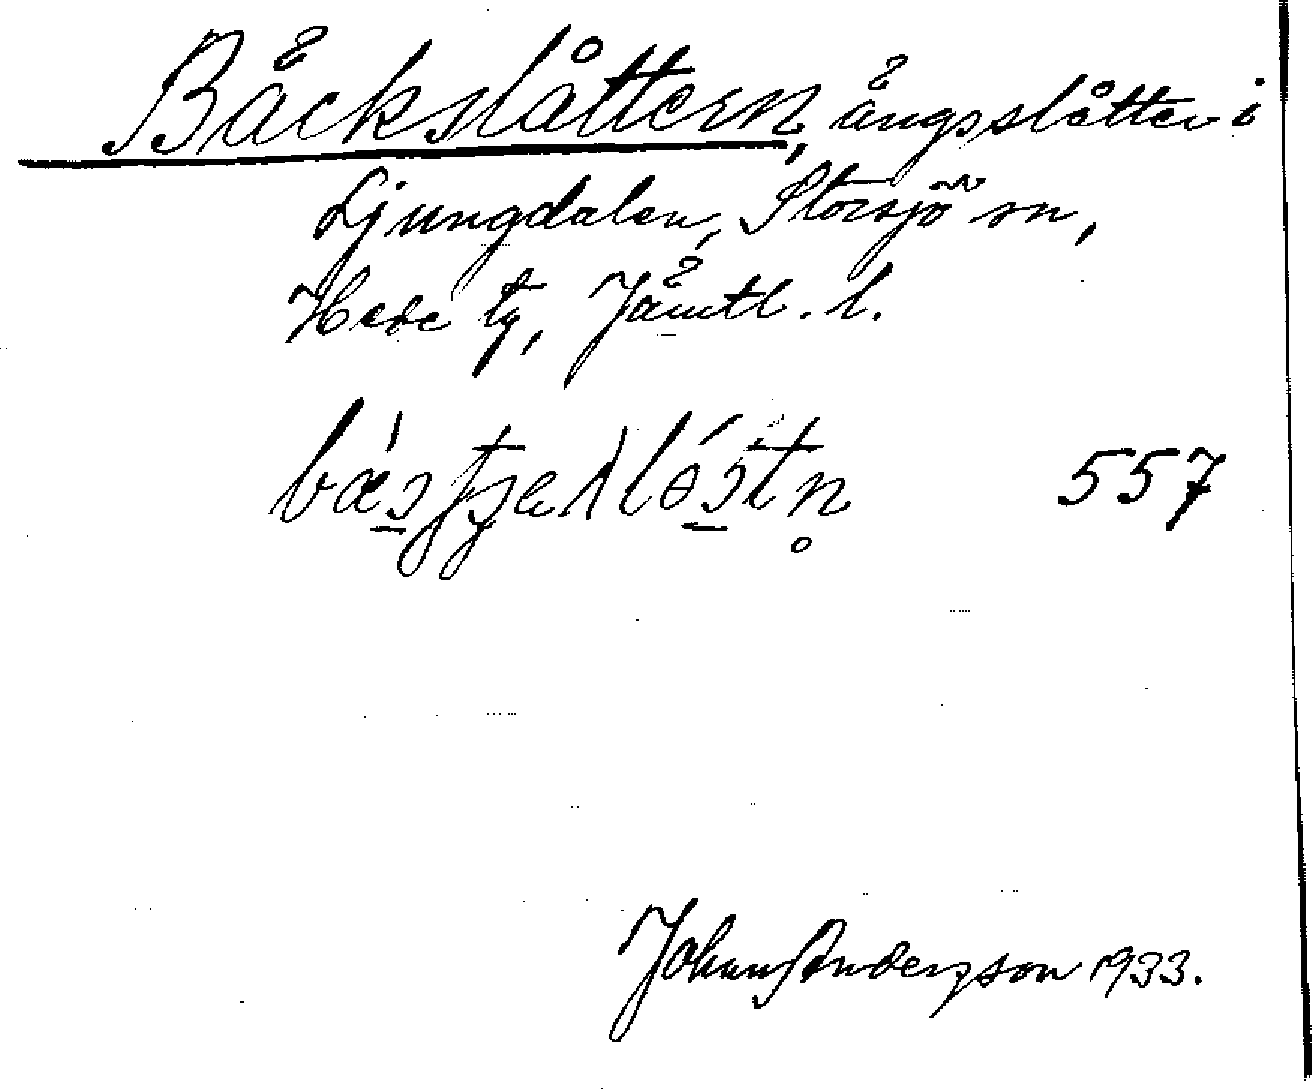 Bäckslåttern, ängsslåtter i
Ljungdalen, Storsjö sn,
Hede tg, Jämtl. l.
557
Johan Andersson 1933.